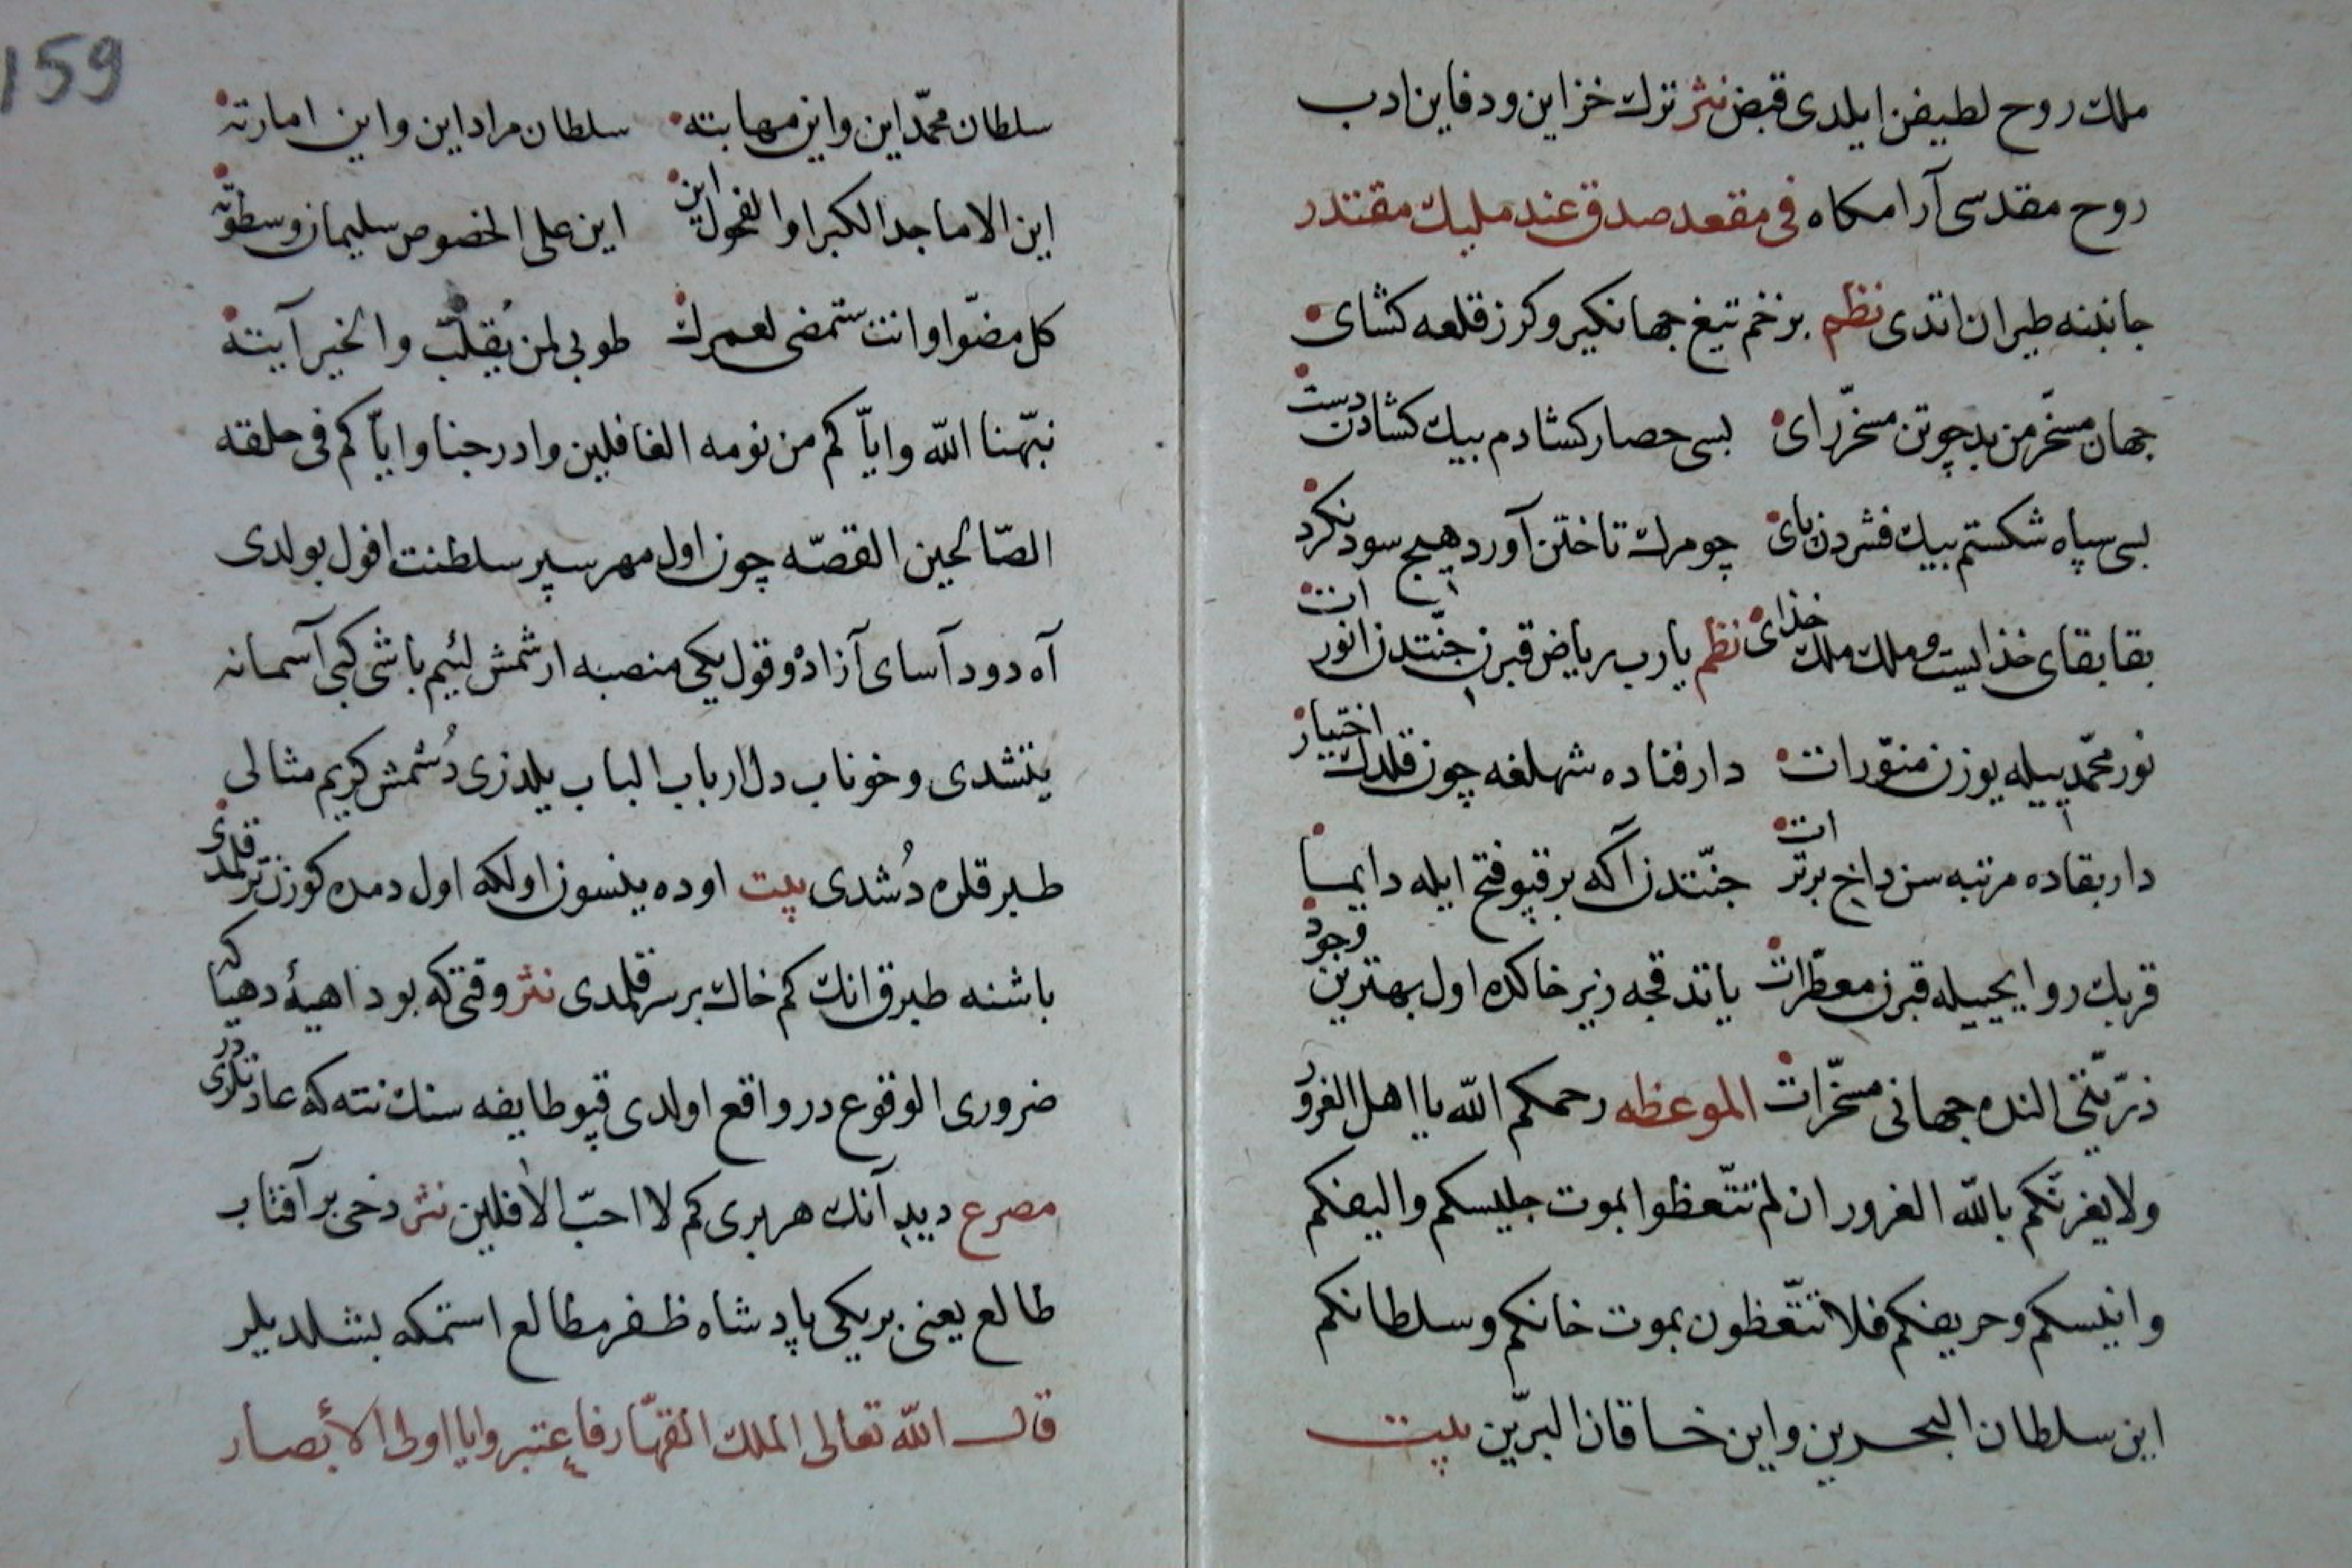 ملك روح لطيفن ايلدى قبض نثر ترك خزاين ودفاين ادب
روح مقدسى آرامكاه فى مقعد صدق عند مليك مقتدر
جانبنه طيران اتدى نظم بزخم تيغ جهانكير وكرز قلعه كشاى
جهان مسخّر من بد چوتن مسخّر راى بسى حصار كشادم بيك كشادن دست
بسى سپاه شكستم بيك فشردن پاى چو مرك تاختن آورد هيچ سود نكرد
بقا بقاى خذايست وملك ملك خذاى نظم يارب رياض قبرن جنّتدن انور ات
نور محمّد ييله يوزن منوّر ات دار فناده شهلغه چون قلدك اختيار
دار بقاده مرتبه سن داخ برتر ات جنّتدن آكه بر قپو فتح ايله دايما
قربك روايحييله قبرن معطّر ات ياتدقجه زير خاكده اول بهترين وجود
ذرّيّتى النده جهانى مسخّر ات الموعظه رحمكم الله يا اهل الغرور
ولا يغرنّكم بالله الغرور ان لم تتّعظوا بموت جليسكم واليفكم
وانيسكم وحريفكم فلا تتّعظون بموت خانكم وسلطانكم
اين سلطان البحرين واين خاقان البرّين بيت
159
سلطان محمّد اين واين مهابته سلطان مراد اين واين امارته
اين الاماجد الكبرا والفحول اين اين على الخصوص سليمان وسطوته
كل مضوا وانت ستمضى لعمرك طوبى لمن يُقلّب والخير آيته
نبّهنا الله واياّكم من نومه الغافلين وادرجنا واياّكم فى حلقه
الصّالحين القصّه چون اول مهر سپر سلطنت افول بولدى
آه دود آساى آزاده وقول يكى منصبه ارشمش لئيم باشى كبى آسمانه
يتشدى وخوناب دل ارباب الباب يلدزى دُشمش كريم مثالى
طبرقلره دُشدى بيت اوده ينسون اولكه اول دمده كوزن تر قلمدى
باشنه طبرق انك كم خاك برسر قلمدى نثر وقتى كه بو داهيهٔ دهيا كه
ضرورى الوقوع در واقع اولدى قپو طايفه سنك نته كه عادتلرى در
مصرع ديديلر آنك هر برى كم لا احبّ الآفلين نثر دخى بر آفتاب
طالع يعنى بر يكى پادشاه ظفر مطالع استمكه بشلديلر
قال الله تعالى الملك القهّار فاعتبروا يا اولى الأبصار